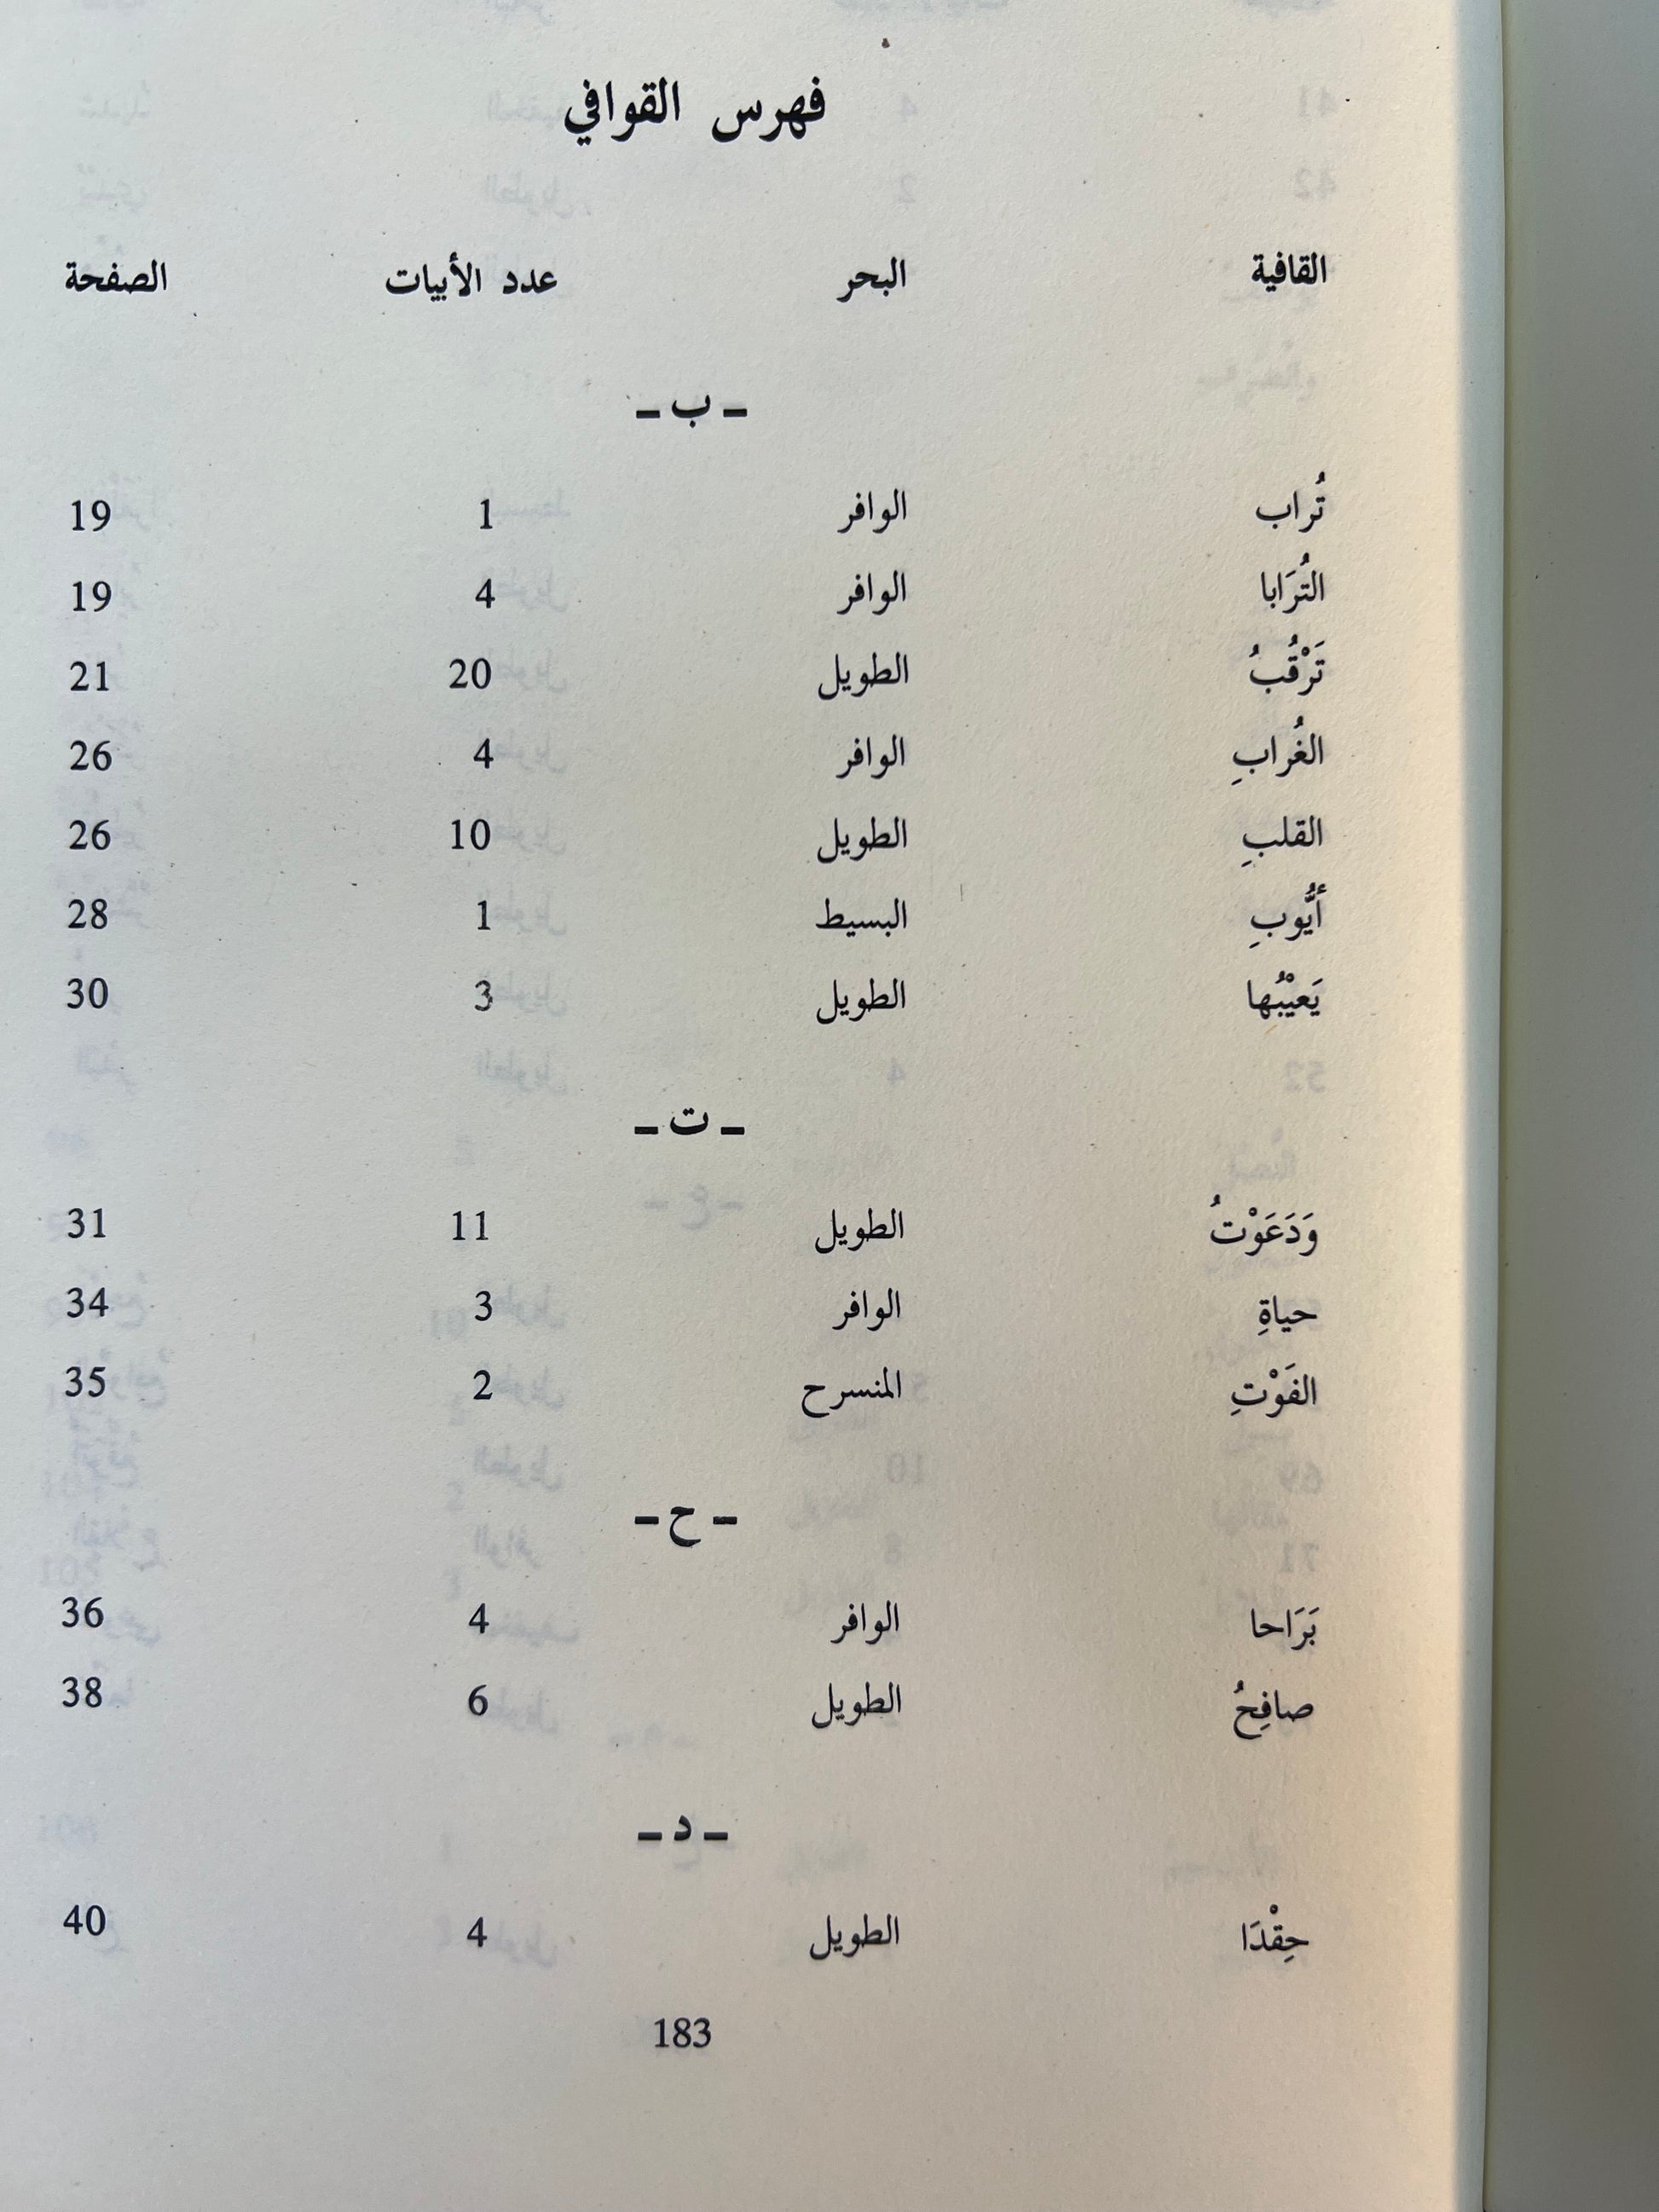 فهرس القوافي
القافية البحر عدد الأبيات الصفحة
ـ ب ـ
تُراب الوافر 1 19
التُرَابا الوافر 4 19
تَرْقُبُ الطويل 20 21
الغُرابِ الوافر 4 26
القلبِ الطويل 10 26
أيُّوبِ البسيط 1 28
يَعيْبُها الطويل 3 30
ـ ت ـ
وَدَعَوْتُ الطويل 11 31
حياةِ الوافر 3 34
الفَوْتِ المنسرح 2 35
ـ ح ـ
بَرَاحا الوافر 4 36
صافِحُ الطويل 6 38
ـ د ـ
حِقْدَا الطويل 4 40
183